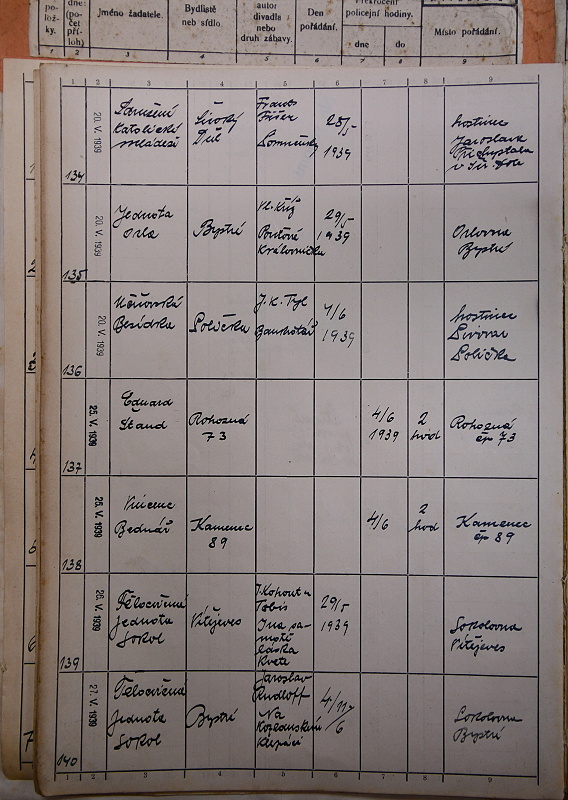 po-
lož-
ky.
dne:
(po-
čet
pří-
loh)
Jméno žadatele.
Bydliště
neb sídlo.
autor
divadla
nebo
druh zábavy.
Den
pořádání.
Překročení
policejní hodiny.
dne
do
Místo pořádání.
1 2 3 4 5 6 7 8 9
1 2 3 4 5 6 7 8 9
134
20. V. 1939
Sdružení
katolické
mládeže
Široký
Důl
Frant.
28/5
1939
hostinec
Jaroslava
v Šir. Dole
135
20. V. 1939
Jednota
Orla
Bystré
Vl. Kříž
Poutové
Královnička
29/5
1939
Orlovna
Bystré
136
20. V. 1939
Besídka
Polička
J. K. Tyl
Bankrotář
4/6
1939
hostinec
Pivovar
Polička
137
25. V. 1939
Eduard
Štand
Rohozná
73
4/6
1939
2
hod
Rohozná
čp 73
138
25. V. 1939
Vincenc
Bednář
Kamenec
89
4/6
2
hod
Kamenec
čp 89
139
26. V. 1939
Tělocvičná
jednota
Sokol
Vítějeves
J. Kohout a
Tobis
I na sa-
motě
láska
kvete
29/5
1939
Sokolovna
Vítějeves
140
27. V. 1939
Tělocvičná
jednota
Sokol
Bystré
Jaroslav
Rudloff
Na
Kozlanském
klepáči
4/
6
Sokolovna
Bystré
1 2 3 4 5 6 7 8 9